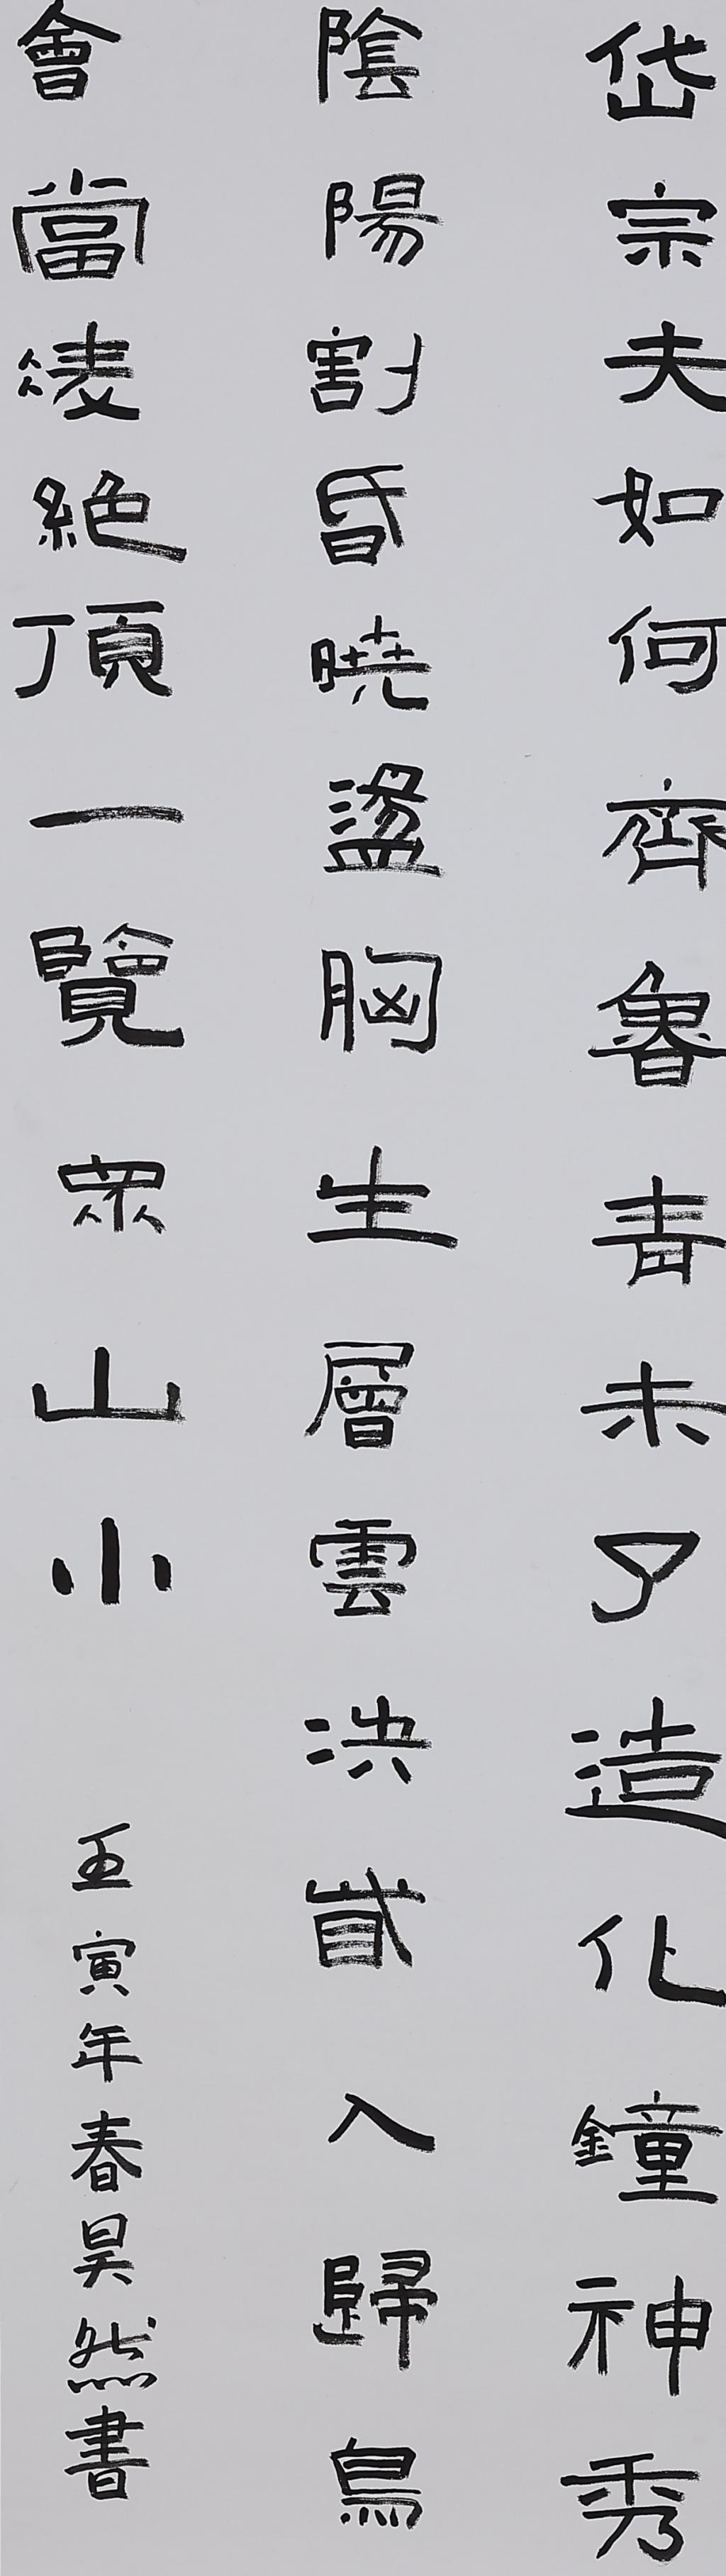 岱宗夫如何齊魯青未了造化鐘神秀
陰陽割昏曉盪胸生層雲決眥入歸鳥
會當淩絕頂一覽眾山小
壬寅年春昊然書